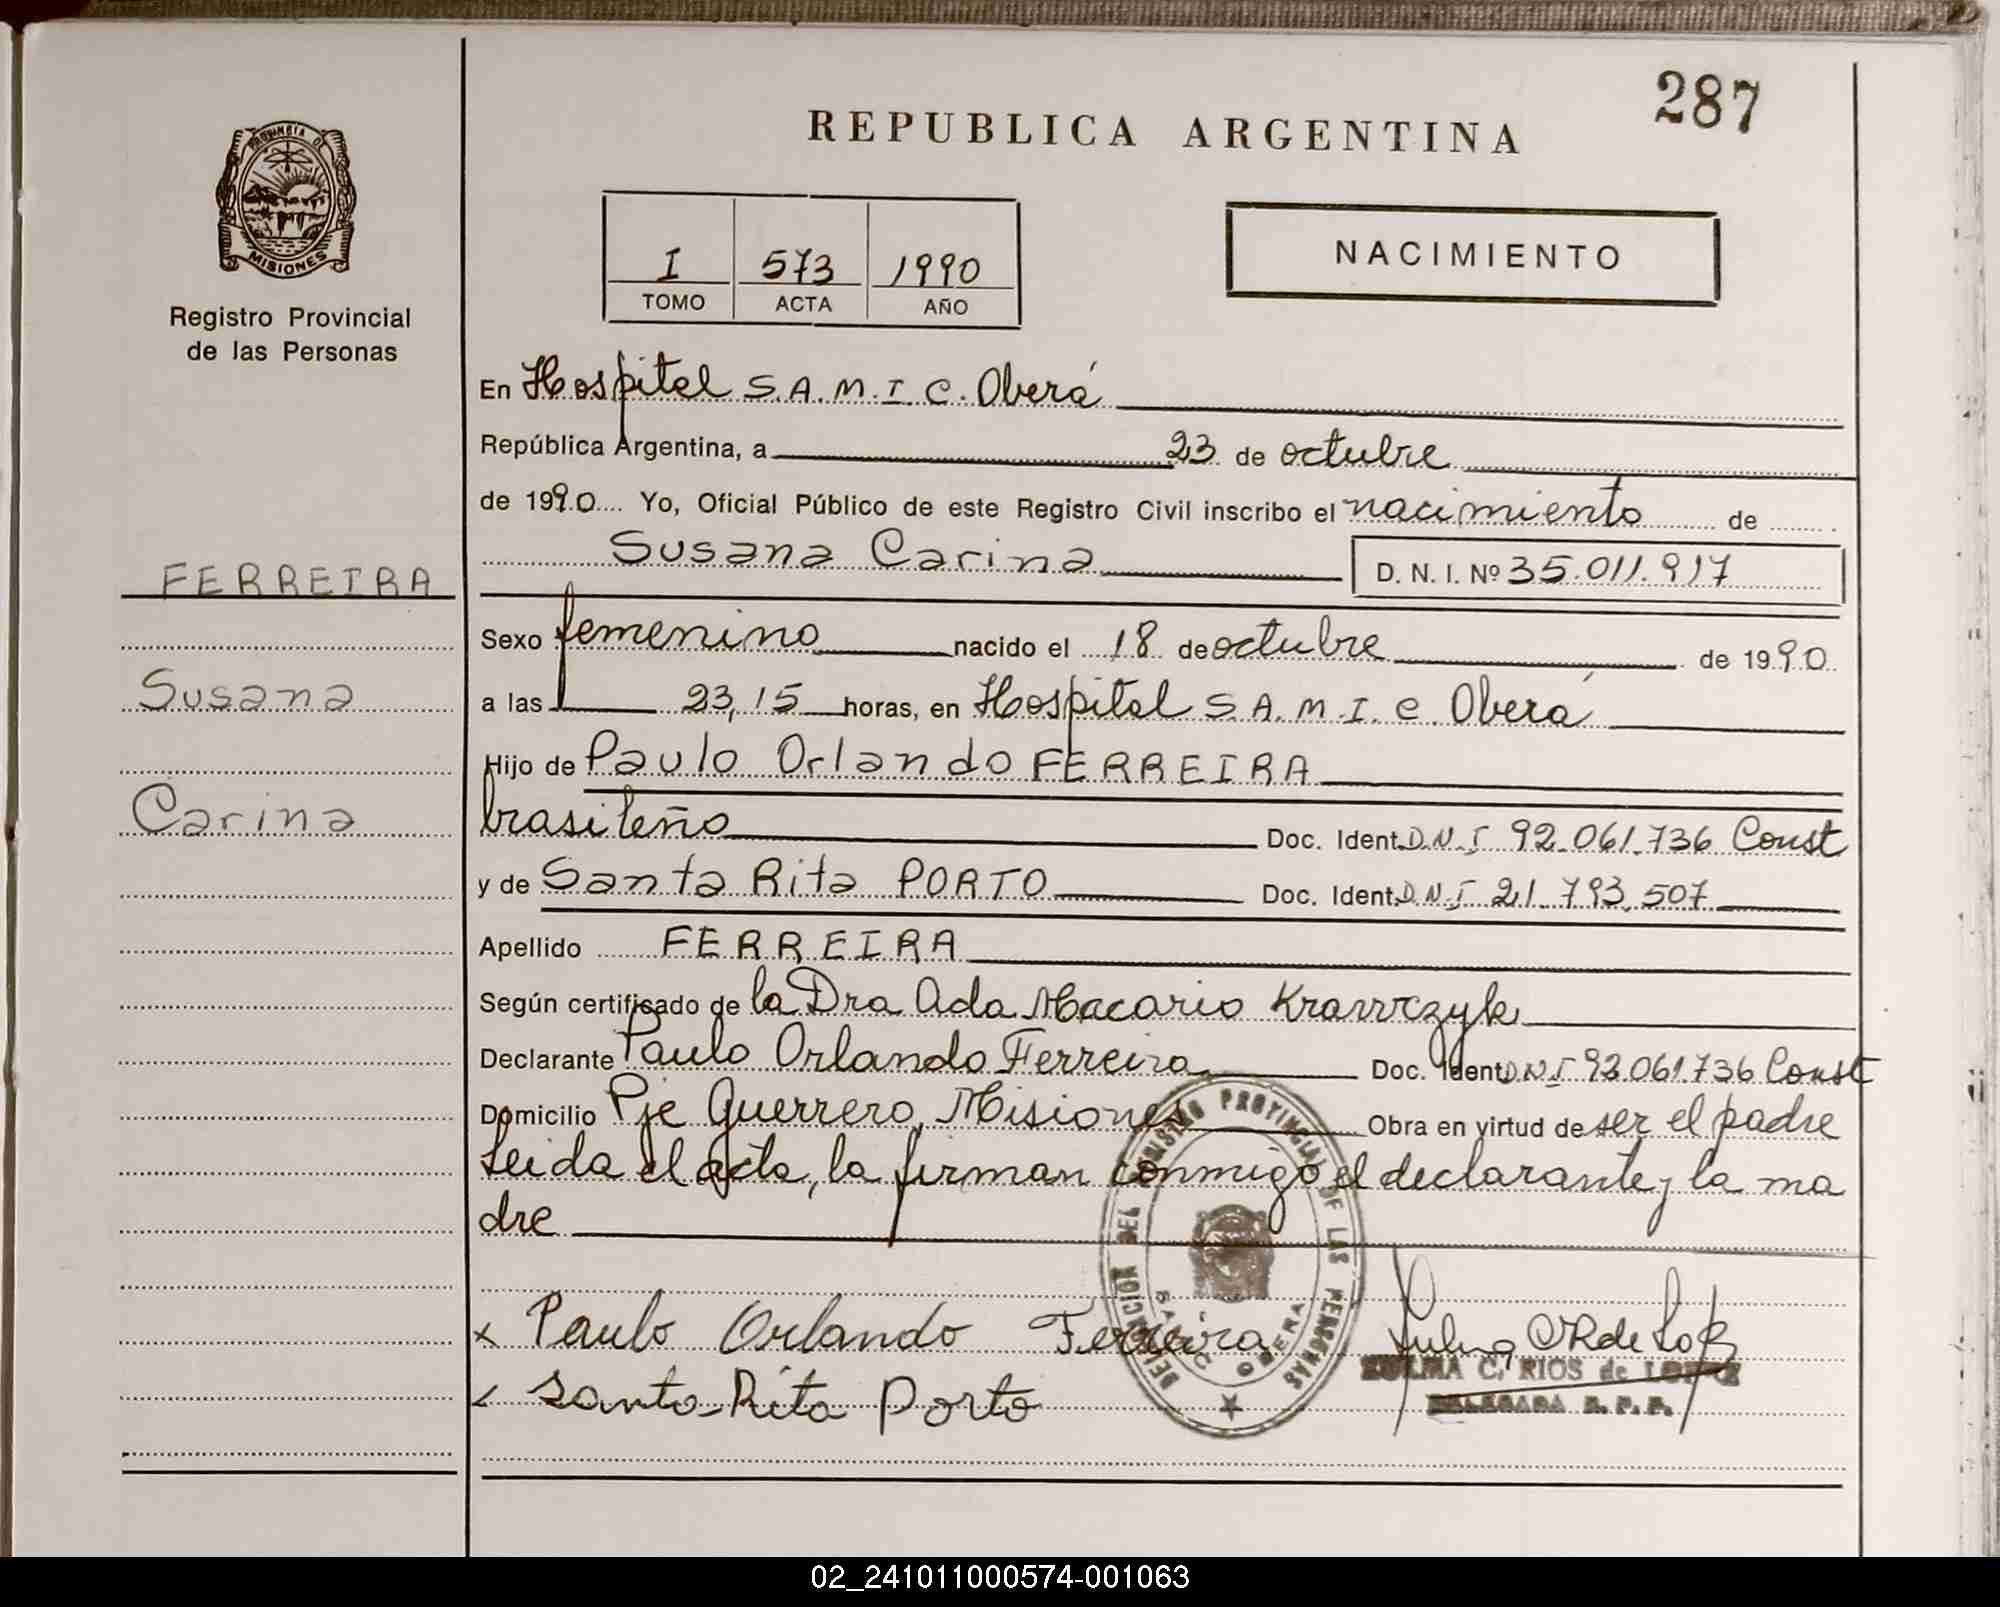 287
REPUBLICA ARGENTINA
PROVINCIA D
MISIONES
Registro Provincial
de las Personas
I 573 1990
TOMO ACTA AÑO
NACIMIENTO
En Hospital S.A.M.I.C. Oberá
República Argentina, a 23 de octubre
de 1990 Yo, Oficial Público de este Registro Civil inscribo el nacimiento de
Susana Carina D.N.I. Nº 35.011.917
FERREIRA
Susana
Carina
Sexo femenino nacido el 18 de octubre de 1990
a las 23,15 horas, en Hospital S.A.M.I.C. Oberá
Hijo de Paulo Orlando FERREIRA
brasileño Doc. Ident. D.N.I 92.061.736 Const
y de Santa Rita PORTO Doc. Ident. D.N.I 21.793.507
Apellido FERREIRA
Según certificado de la Dra Ada Macario Krawczyk
Declarante Paulo Orlando Ferreira Doc. Ident. D.N.I 92.061.736 Const
Domicilio Pje Guerrero, Misiones Obra en virtud de ser el padre
Leida el acta, la firman conmigo el declarante y la ma
dre
Paulo Orlando Ferreira
Santa Rita Porto
DELEGACION DEL REGISTRO PROVINCIAL DE LAS PERSONAS
OBERA
ZULMA C. RIOS de LOPEZ
DELEGADA R.P.P.
02_241011000574-001063